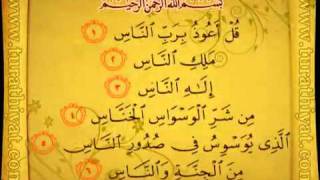 بِسْمِ اللهِ الرَّحْمٰنِ الرَّحِيمِ
قُلْ أَعُوذُ بِرَبِّ ٱلنَّاسِ ١
مَلِكِ ٱلنَّاسِ ٢
إِلَٰهِ ٱلنَّاسِ ٣
مِن شَرِّ ٱلْوَسْوَاسِ ٱلْخَنَّاسِ ٤
ٱلَّذِى يُوَسْوِسُ فِى صُدُورِ ٱلنَّاسِ ٥
مِنَ ٱلْجِنَّةِ وَٱلنَّاسِ ٦
www.turathiyat.com
www.turathiyat.com